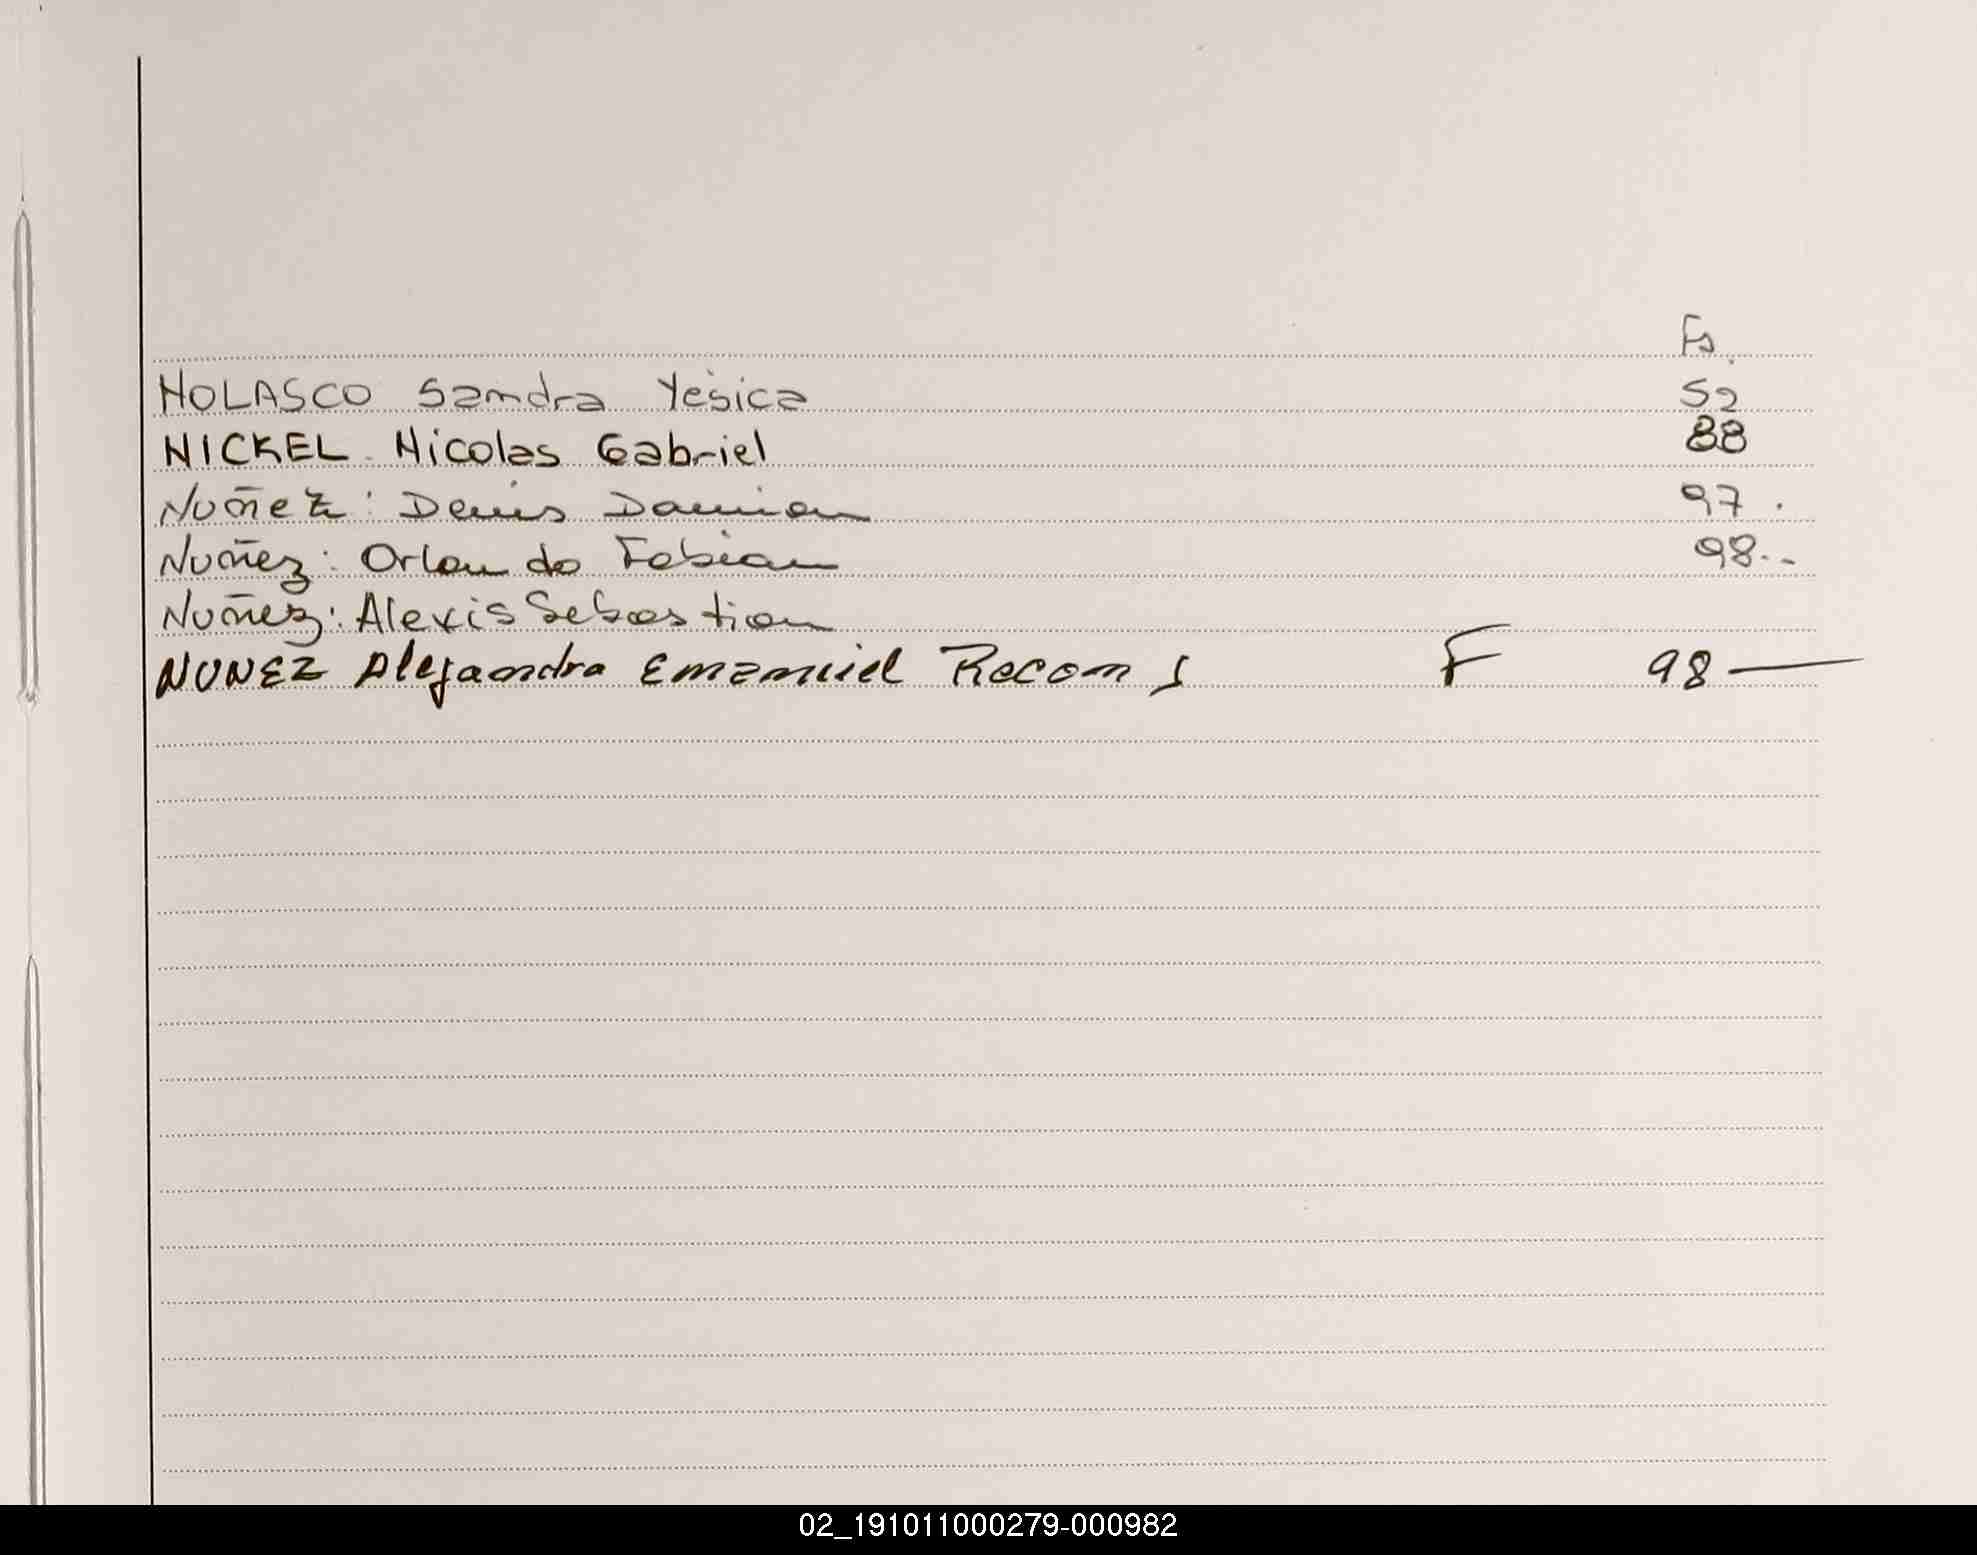 Fs.
NOLASCO Sandra Yesica 52
NICKEL Nicolas Gabriel 88
Nuñez: Denis Damian 97.
Nuñez: Orlando Fabian 98..
Nuñez: Alexis Sebastian
NUNEZ Alejandra Emanuel Recon F 98—
02_191011000279-000982